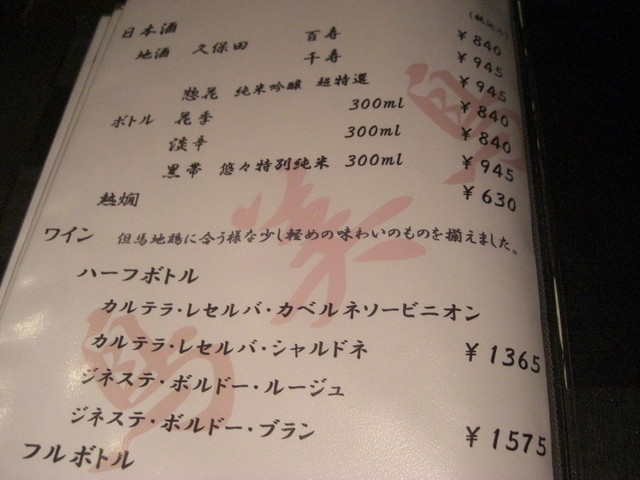 (税込み)
日本酒
地酒 久保田 百寿 ¥840
千寿 ¥945
惣花 純米吟醸 超特選 ¥945
ボトル 花季 300ml ¥840
淡辛 300ml ¥840
黒帯 悠々特別純米 300ml ¥945
熱燗 ¥630
ワイン 但馬地鶏に合う様な少し軽めの味わいのものを揃えました。
ハーフボトル
カルテラ・レセルバ・カベルネソービニオン
カルテラ・レセルバ・シャルドネ ¥1365
ジネステ・ボルドー・ルージュ
ジネステ・ボルドー・ブラン ¥1575
フルボトル